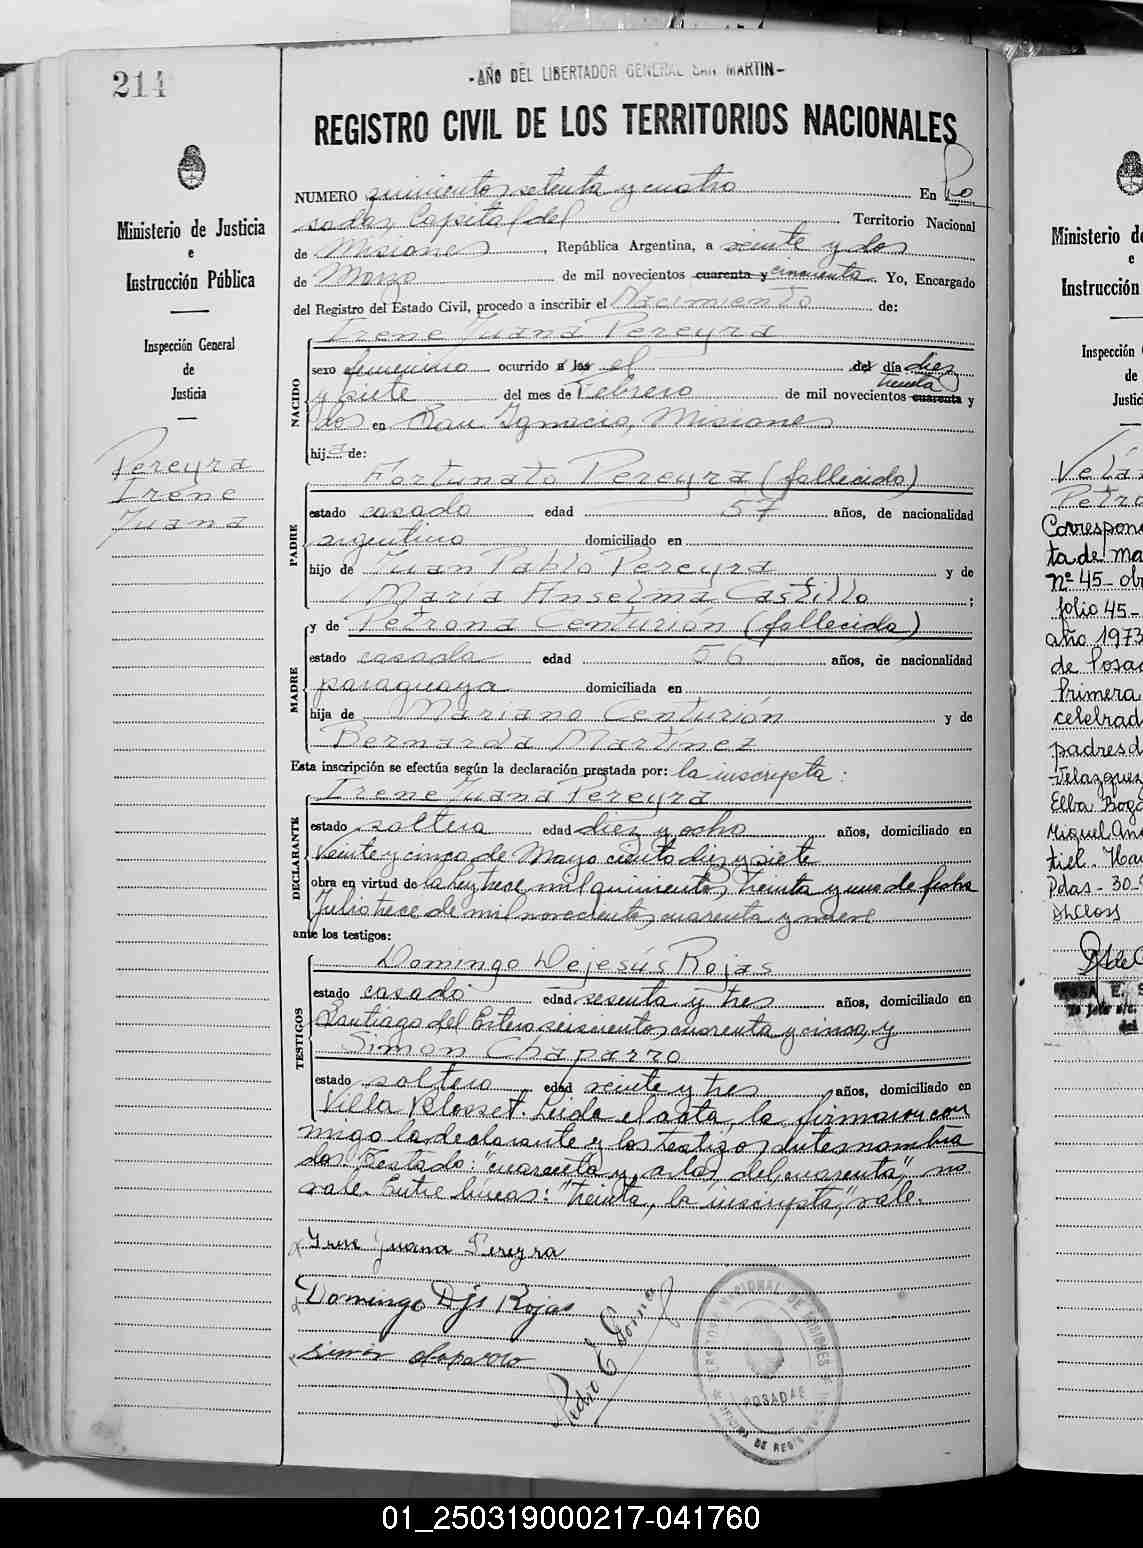 214
-AÑO DEL LIBERTADOR GENERAL SAN MARTIN-
REGISTRO CIVIL DE LOS TERRITORIOS NACIONALES
Ministerio de Justicia
e
Instrucción Pública
Inspección General
de
Justicia
Pereyra
Irene
Juana
NUMERO quinientos setenta y cuatro En Po
sadas, Capital del Territorio Nacional
de Misiones, República Argentina, a veinte y dos
de Marzo de mil novecientos cuarenta y cincuenta. Yo, Encargado
del Registro del Estado Civil, procedo a inscribir el Nacimiento de:
Irene Juana Pereyra
NACIDO
sexo femenino ocurrido a las el del día diez
treinta
y siete del mes de Febrero de mil novecientos cuarenta y
dos en San Ignacio, Misiones
hija de:
Fortunato Pereyra (fallecido)
PADRE
estado casado edad 57 años, de nacionalidad
argentino domiciliado en
hijo de Juan Pablo Pereyra y de
María Anselma Castillo;
y de Petrona Centurión (fallecida)
MADRE
estado casada edad 56 años, de nacionalidad
paraguaya domiciliada en
hija de Mariano Centurión y de
Bernarda Martínez
Esta inscripción se efectúa según la declaración prestada por: la inscripta:
Irene Juana Pereyra
DECLARANTE
estado soltera edad diez y ocho años, domiciliado en
Veinte y cinco de Mayo ciento diez y siete
obra en virtud de la Ley trece mil quinientos treinta y uno de fecha
Julio trece de mil novecientos cuarenta y nueve
ante los testigos:
Domingo Dejesús Rojas
TESTIGOS
estado casado edad sesenta y tres años, domiciliado en
Santiago del Estero seiscientos cuarenta y cinco, y
Simon Chaparro
estado soltero edad veinte y tres años, domiciliado en
Villa Blosset. Leida el acta, la firmaron con
migo la declarante y los testigos antes nombra
dos. Testado: "cuarenta y, a las, del, cuarenta", no
vale. Entre lineas: "treinta, la inscripta", vale.
Irene Juana Pereyra
Domingo Djs Rojas
simón chaparro
POSADAS
Ministerio de
e
Instrucción
Inspección
de
Justic
Petro
Correspon
ta de ma
Nº 45-
folio 45-
año 1973
de Posa
Primera
celebrad
padres d
Velazquez
Elba
Miguel An
tiel.
Pdas-30-
01_250319000217-041760